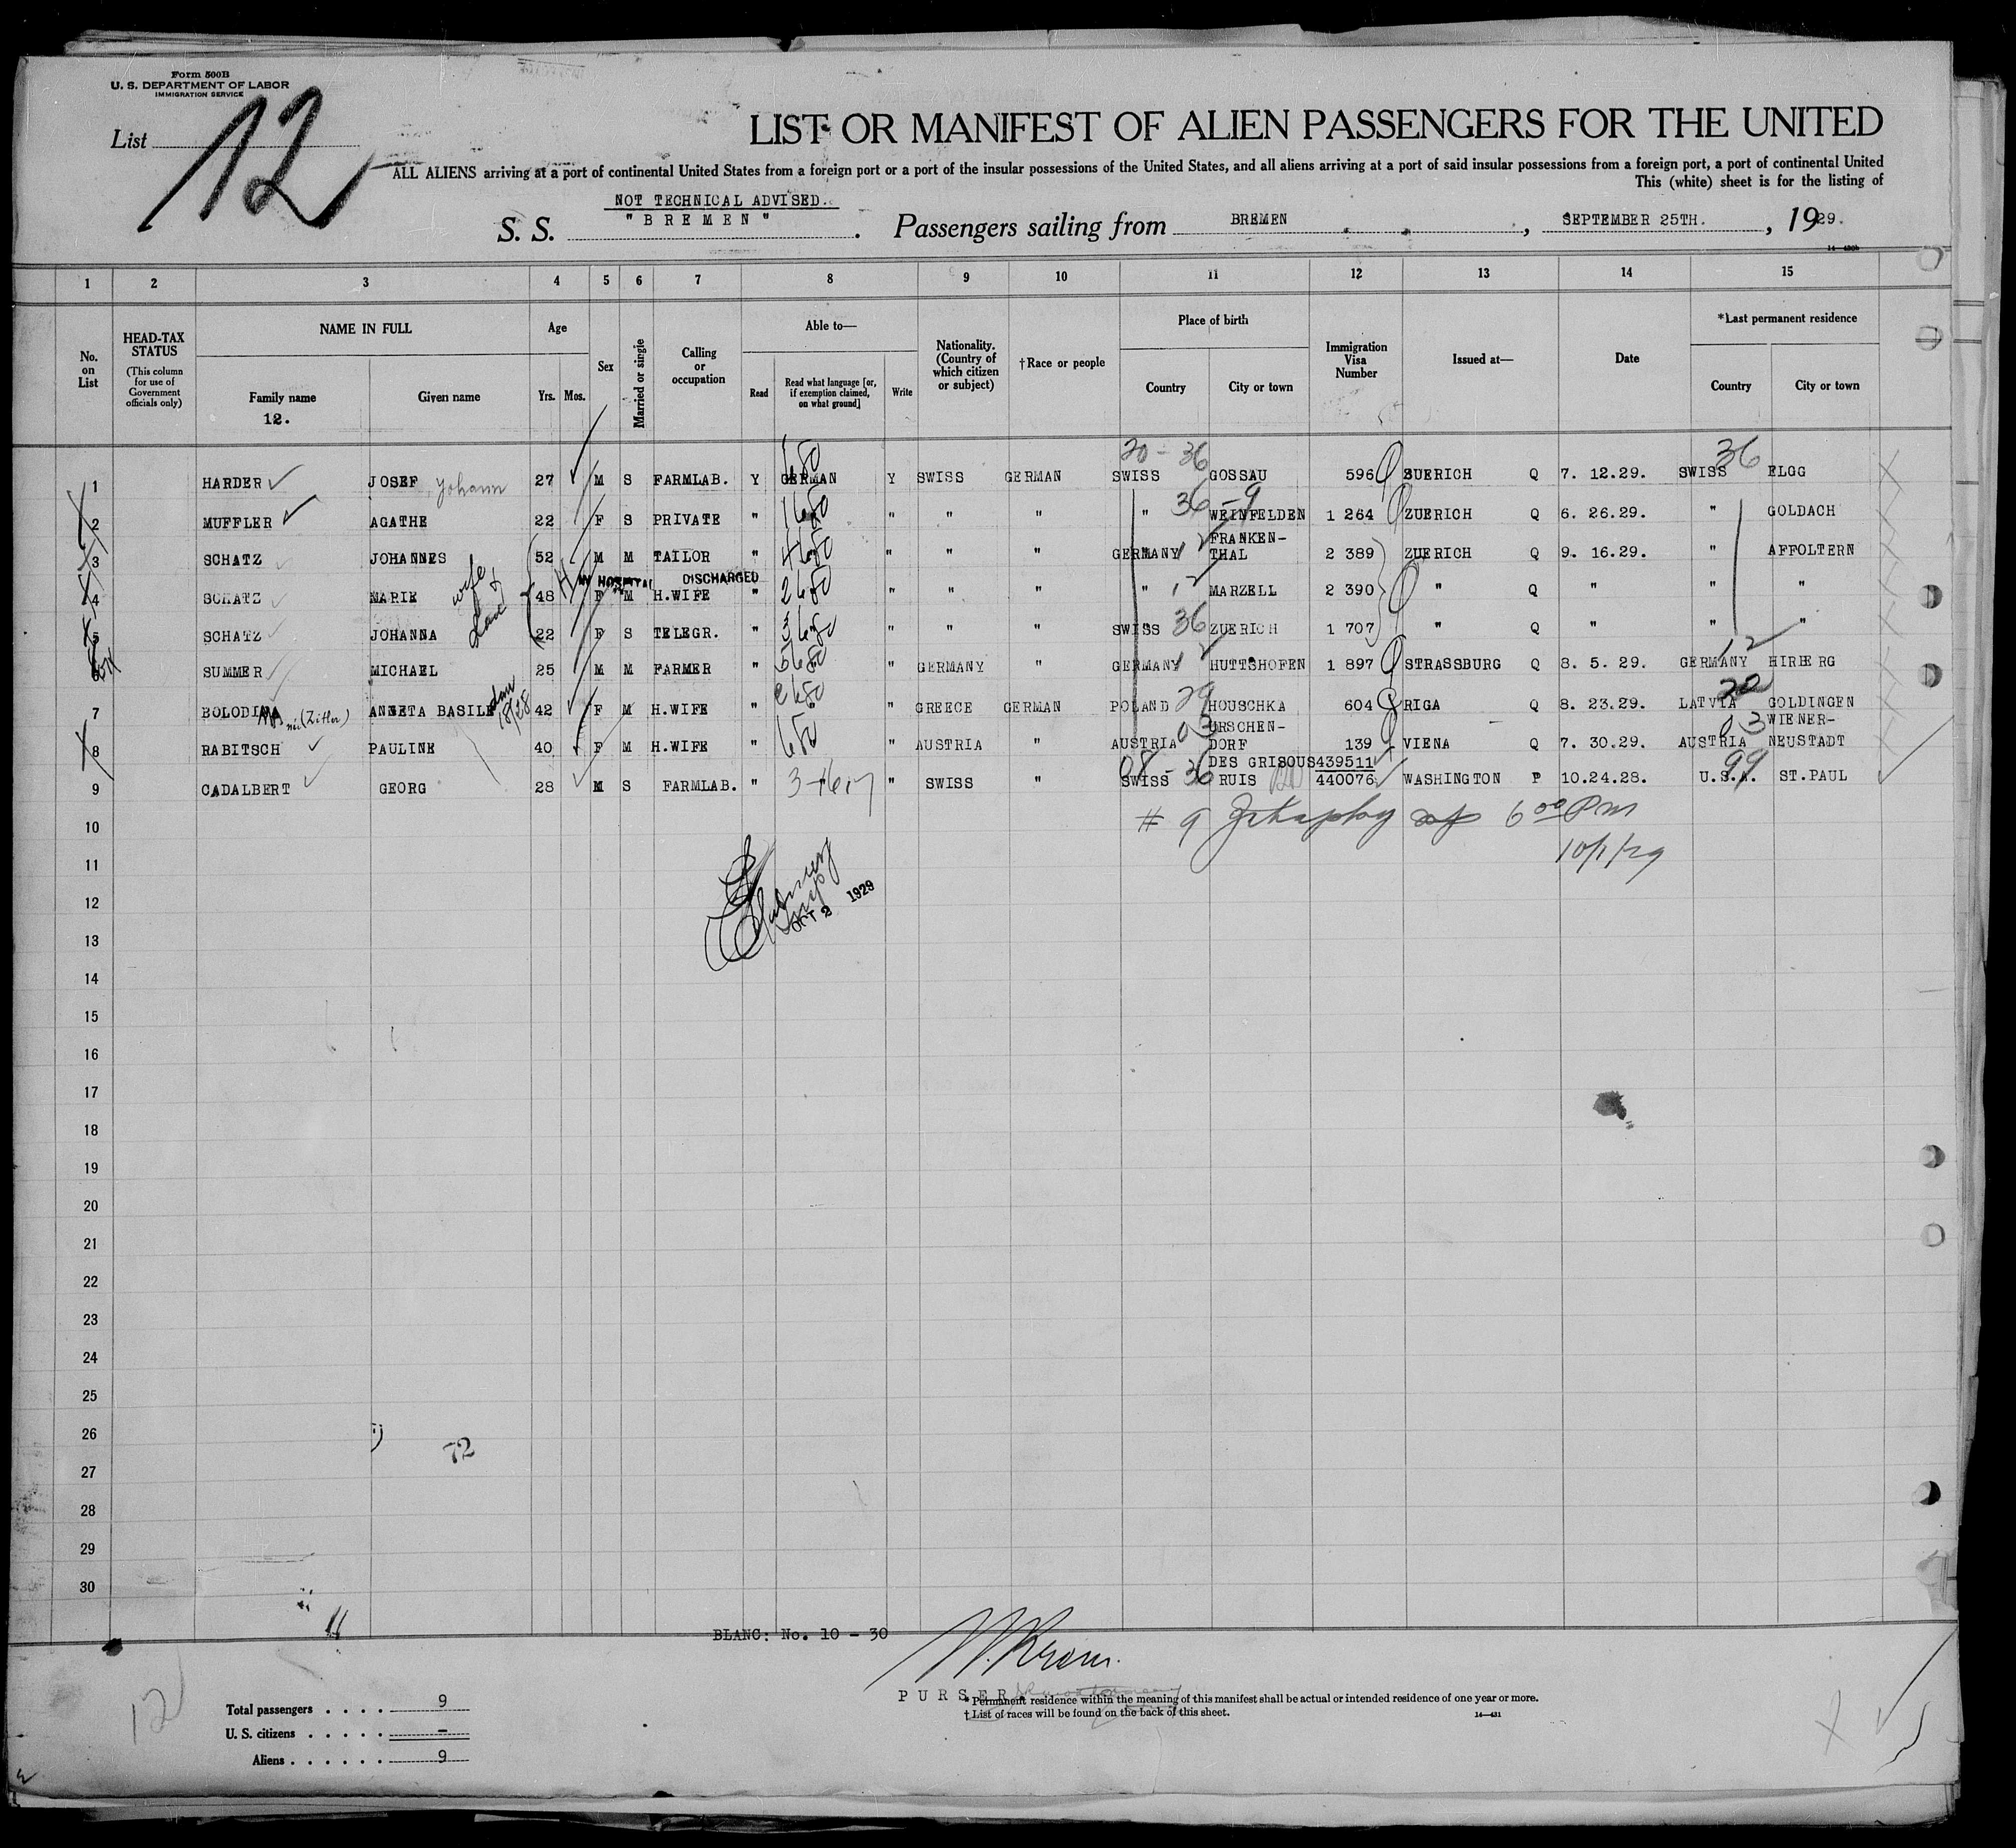 Form 500B
U. S. DEPARTMENT OF LABOR
IMMIGRATION SERVICE
List 12
LIST OR MANIFEST OF ALIEN PASSENGERS FOR THE UNITED
ALL ALIENS arriving at a port of continental United States from a foreign port or a port of the insular possessions of the United States, and all aliens arriving at a port of said insular possessions from a foreign port, a port of continental United
This (white) sheet is for the listing of
NOT TECHNICAL ADVISED.
S. S. "BREMEN". Passengers sailing from BREMEN, SEPTEMBER 25TH., 1929.
1 2 3 4 5 6 7 8 9 10 11 12 13 14 15
No. on List
HEAD-TAX STATUS
(This column for use of Government officials only)
NAME IN FULL
Family name
12.
Given name
Age
Yrs. Mos.
Sex
Married or single
Calling or occupation
Able to—
Read
Read what language [or, if exemption claimed, on what ground]
Write
Nationality. (Country of which citizen or subject)
†Race or people
Place of birth
Country
City or town
Immigration Visa Number
Issued at—
Date
*Last permanent residence
Country
City or town
20-36 36
1 HARDER JOSEF Johann 27 M S FARMLAB. Y GERMAN Y SWISS GERMAN SWISS GOSSAU 596 ZUERICH Q 7. 12.29. SWISS ELGG
36-9
2 MUFFLER AGATHE 22 F S PRIVATE " " " " " WEINFELDEN 1 264 ZUERICH Q 6. 26.29. " GOLDACH
3 SCHATZ JOHANNES 52 M M TAILOR " " " " GERMANY 12 FRANKEN-THAL 2 389 ZUERICH Q 9. 16.29. " AFFOLTERN
IN HOSPITAL DISCHARGED
4 SCHATZ MARIE wife 48 F M H.WIFE " " " " " 12 MARZELL 2 390 " Q " " "
5 SCHATZ JOHANNA 22 F S TELEGR. " " " " SWISS 36 ZUERICH 1 707 " Q " " "
6 SUMMER MICHAEL 25 M M FARMER " " GERMANY " GERMANY 12 HUTTSHOFEN 1 897 STRASSBURG Q 8. 5. 29. GERMANY 12 HIRBERG
7 BOLODIMA née (Zitler) ANNETA BASILE 42 F M H.WIFE " " GREECE GERMAN POLAND 29 HOUSCHKA 604 RIGA Q 8. 23.29. LATVIA 20 GOLDINGEN
8 RABITSCH PAULINE 40 F M H.WIFE " " AUSTRIA " AUSTRIA 03 URSCHEN-DORF 139 VIENA Q 7. 30.29. AUSTRIA 03 WIENER-NEUSTADT
9 CADALBERT GEORG 28 M S FARMLAB. " " SWISS " SWISS 08-36 DES GRISOUS RUIS 439511 440076 WASHINGTON P 10.24.28. U.S.A. 99 ST.PAUL
# 9 6 00 PM
10/1/29
10
11
12
OCT 2 1929
13
14
15
16
17
18
19
20
21
22
23
24
25
26
72
27
28
29
30
11
BLANC: No. 10 - 30
PURSER
* Permanent residence within the meaning of this manifest shall be actual or intended residence of one year or more.
† List of races will be found on the back of this sheet.
14—431
12
Total passengers . . . . 9
U. S. citizens . . . . . —
Aliens . . . . . . 9